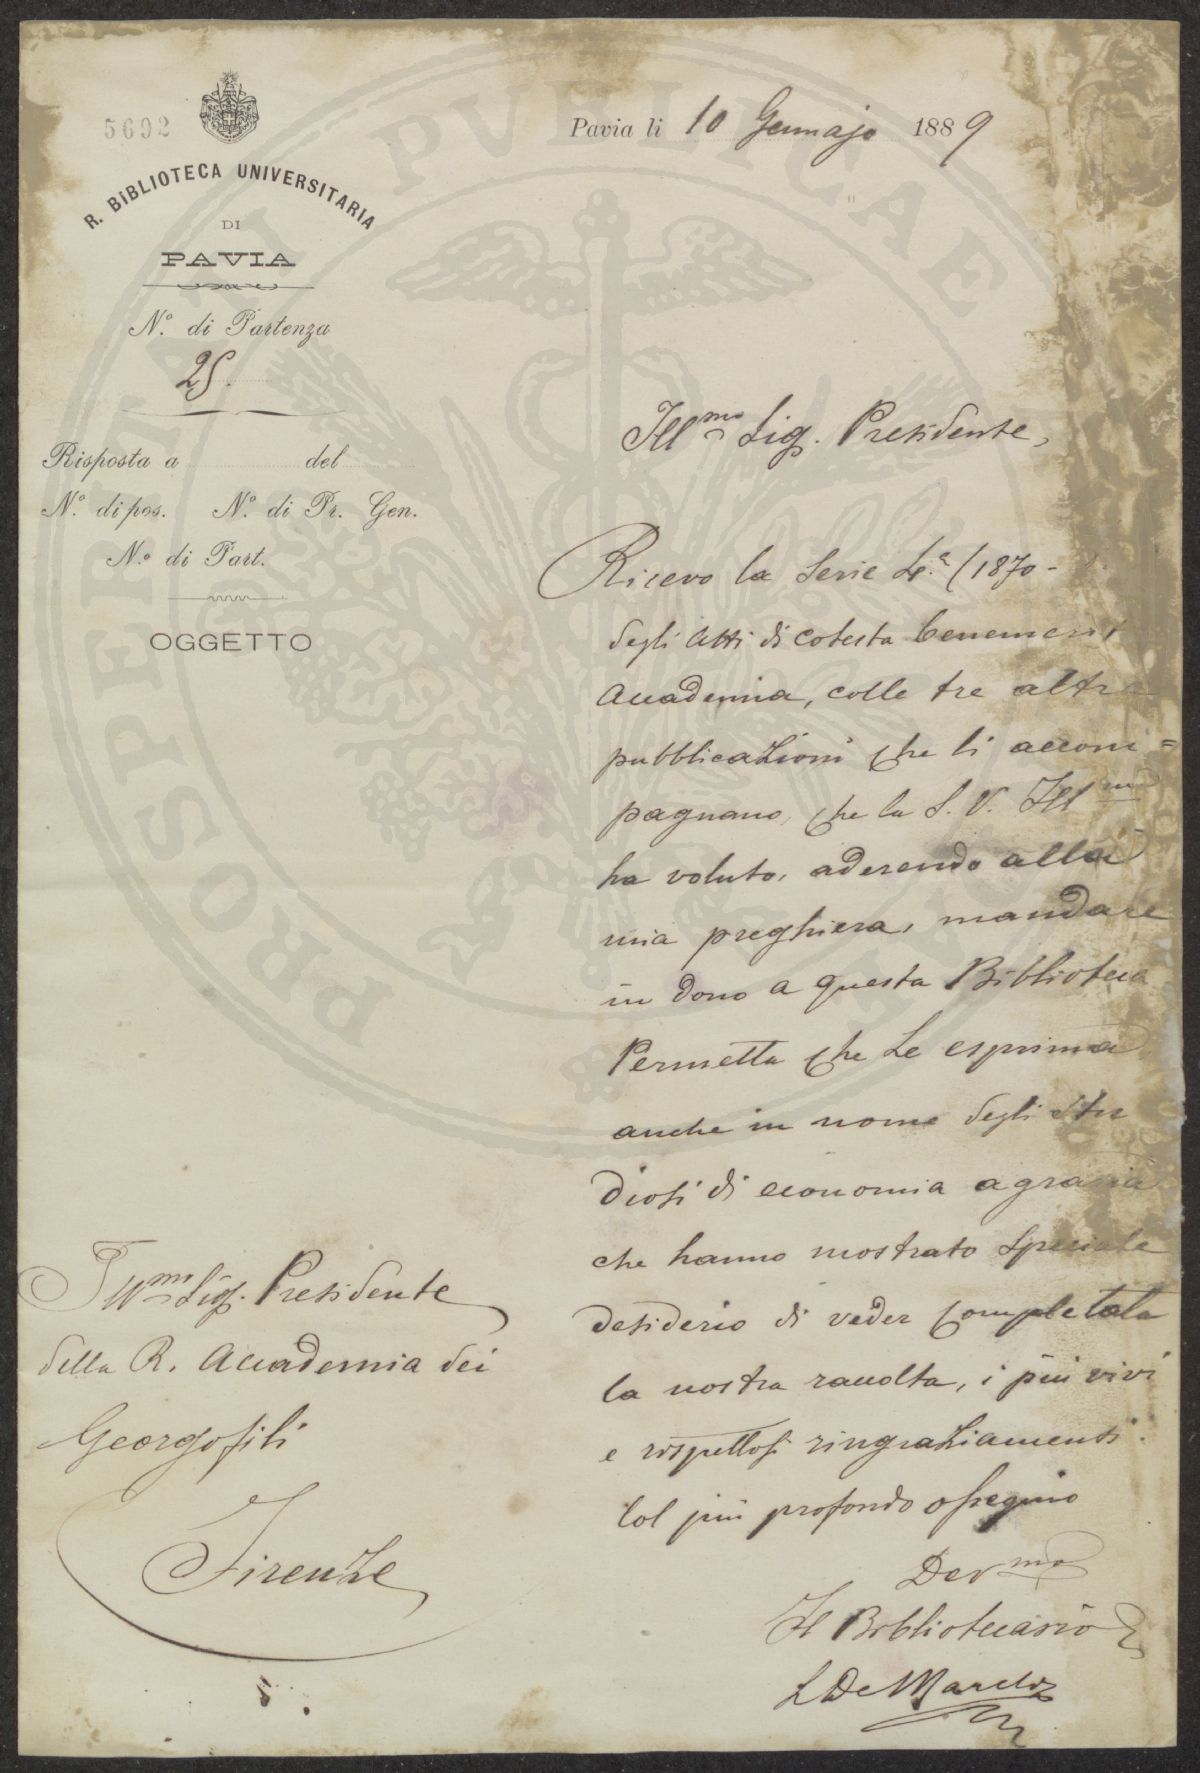 5692
R. BIBLIOTECA UNIVERSITARIA
DI
PAVIA
N.° di Partenza
25.
Risposta a del
N.° di pos. N.° di Pr. Gen.
N.° di Part.
OGGETTO
Pavia li 10 Gennajo 1889
Illmo Sig. Presidente,
Ricevo la Serie 4.a (1870-
degli Atti di cotesta benemerit
Accademia, colle tre altre
pubblicazioni che li accom=
pagnano, che la S. V. Illma
ha voluto, aderendo alla
mia preghiera, mandare
in dono a questa Biblioteca
Permetta che Le esprima
anche in nome degli stu
diosi di economia agraria
che hanno mostrato speciale
desiderio di veder completata
la nostra raccolta, i più vivi
e rispettosi ringraziamenti.
Col più profondo ossequio
Devmo
Il Bibliotecario
L De Marchi
Illmo Sig. Presidente
della R. Accademia dei
Georgofili
Firenze
PROSPERITATI PUBLICAE AUGENDAE